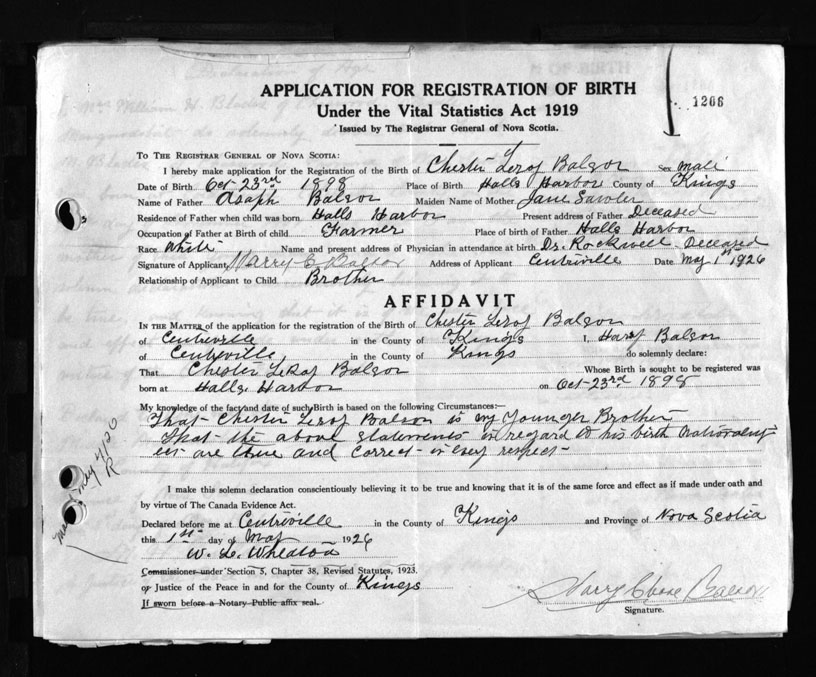 APPLICATION FOR REGISTRATION OF BIRTH
1206
Under the Vital Statistics Act 1919
Issued by The Registrar General of Nova Scotia.
TO THE REGISTRAR GENERAL OF NOVA SCOTIA:
I hereby make application for the Registration of the Birth of Chester Leroy Balsor Sex male
Date of Birth Oct 23rd 1898 Place of Birth Halls Harbor County of Kings
Name of Father Asaph Balsor Maiden Name of Mother Jane Sawler
Residence of Father when child was born Halls Harbor Present address of Father Deceased
Occupation of Father at Birth of child Farmer Place of birth of Father Halls Harbor
Race White Name and present address of Physician in attendance at birth Dr. Rockwell - Deceased
Signature of Applicant Harry C Balsor Address of Applicant Centriville Date May 1st 1926
Relationship of Applicant to Child Brother
AFFIDAVIT
IN THE MATTER of the application for the registration of the Birth of Chester Leroy Balsor
of Centreville in the County of Kings I, Harry Balsor
of Centreville, in the County of Kings do solemnly declare:
That Chester LeRoy Balsor Whose Birth is sought to be registered was
born at Halls Harbor on Oct-23rd 1898
My knowledge of the fact and date of such Birth is based on the following Circumstances:—
That Chester Leroy Balsor is my younger Brother
That the above statements in regard to his birth Nationality
etc are true and correct in every respect -
I make this solemn declaration conscientiously believing it to be true and knowing that it is of the same force and effect as if made under oath and
by virtue of The Canada Evidence Act.
Declared before me at Centriville in the County of Kings and Province of Nova Scotia
this 1st day of May 1926
W. L. Wheaton
Commissioner under Section 5, Chapter 38, Revised Statutes, 1923.
or Justice of the Peace in and for the County of Kings
If sworn before a Notary Public affix seal.
Harry Chase Balsor
Signature.
May 4/26
R